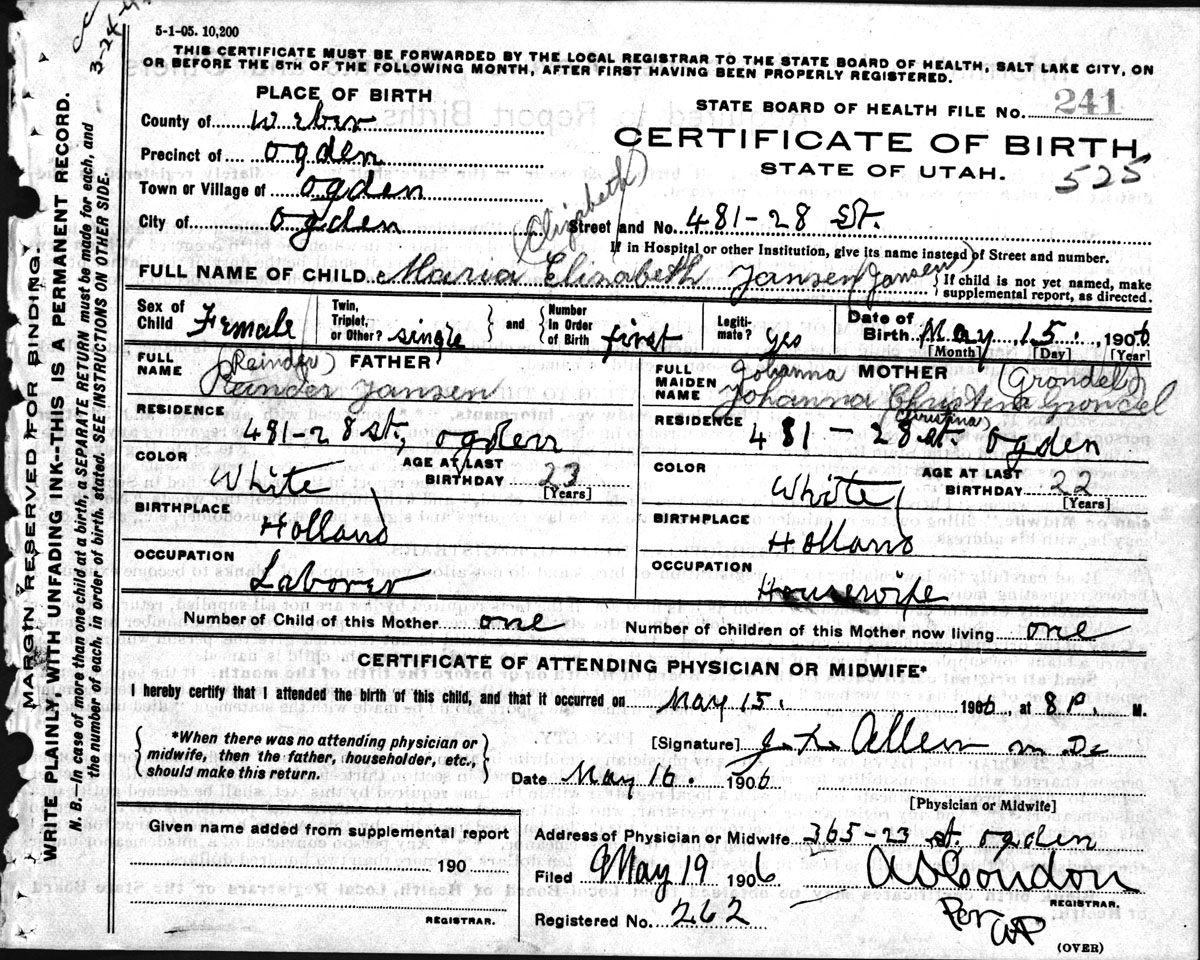 5-1-05. 10,200
THIS CERTIFICATE MUST BE FORWARDED BY THE LOCAL REGISTRAR TO THE STATE BOARD OF HEALTH, SALT LAKE CITY, ON
OR BEFORE THE 5TH OF THE FOLLOWING MONTH, AFTER FIRST HAVING BEEN PROPERLY REGISTERED.
PLACE OF BIRTH
County of Weber
Precinct of Ogden
Town or Village of Ogden
City of Ogden
STATE BOARD OF HEALTH FILE No. 241
CERTIFICATE OF BIRTH
STATE OF UTAH.
525
(Elizabeth)
Street and No. 481-28 St.
If in Hospital or other Institution, give its name instead of Street and number.
FULL NAME OF CHILD Maria Elizabeth Jansen (Jansen)
If child is not yet named, make
supplemental report, as directed.
Sex of Child Female
Twin, Triplet, or Other? single
and Number In Order of Birth first
Legitimate? yes
Date of Birth May 15, 1906
[Month] [Day] [Year]
FULL NAME FATHER
(Reinder)
Reinder Jansen
RESIDENCE
481-28 St, Ogden
COLOR White
AGE AT LAST BIRTHDAY 23
[Years]
BIRTHPLACE
Holland
OCCUPATION
Laborer
FULL MAIDEN NAME MOTHER
Johanna (Grondel)
Johanna Christina Grondel
Christina
RESIDENCE 481-28 St Ogden
COLOR White
AGE AT LAST BIRTHDAY 22
[Years]
BIRTHPLACE
Holland
OCCUPATION
Housewife
Number of Child of this Mother one
Number of children of this Mother now living one
CERTIFICATE OF ATTENDING PHYSICIAN OR MIDWIFE*
I hereby certify that I attended the birth of this child, and that it occurred on May 15. 1906, at 8 P. M.
*When there was no attending physician or
midwife, then the father, householder, etc.,
should make this return.
[Signature] Allen M.D.
Date May 16. 1906
[Physician or Midwife]
Given name added from supplemental report
190
REGISTRAR.
Address of Physician or Midwife 365-23 St. Ogden
Filed May 19 1906
A S Condon
REGISTRAR.
Registered No. 262
Per
(OVER)
MARGIN RESERVED FOR BINDING.
WRITE PLAINLY WITH UNFADING INK--THIS IS A PERMANENT RECORD.
N. B.--In case of more than one child at a birth, a SEPARATE RETURN must be made for each, and
the number of each, in order of birth, stated. SEE INSTRUCTIONS ON OTHER SIDE.